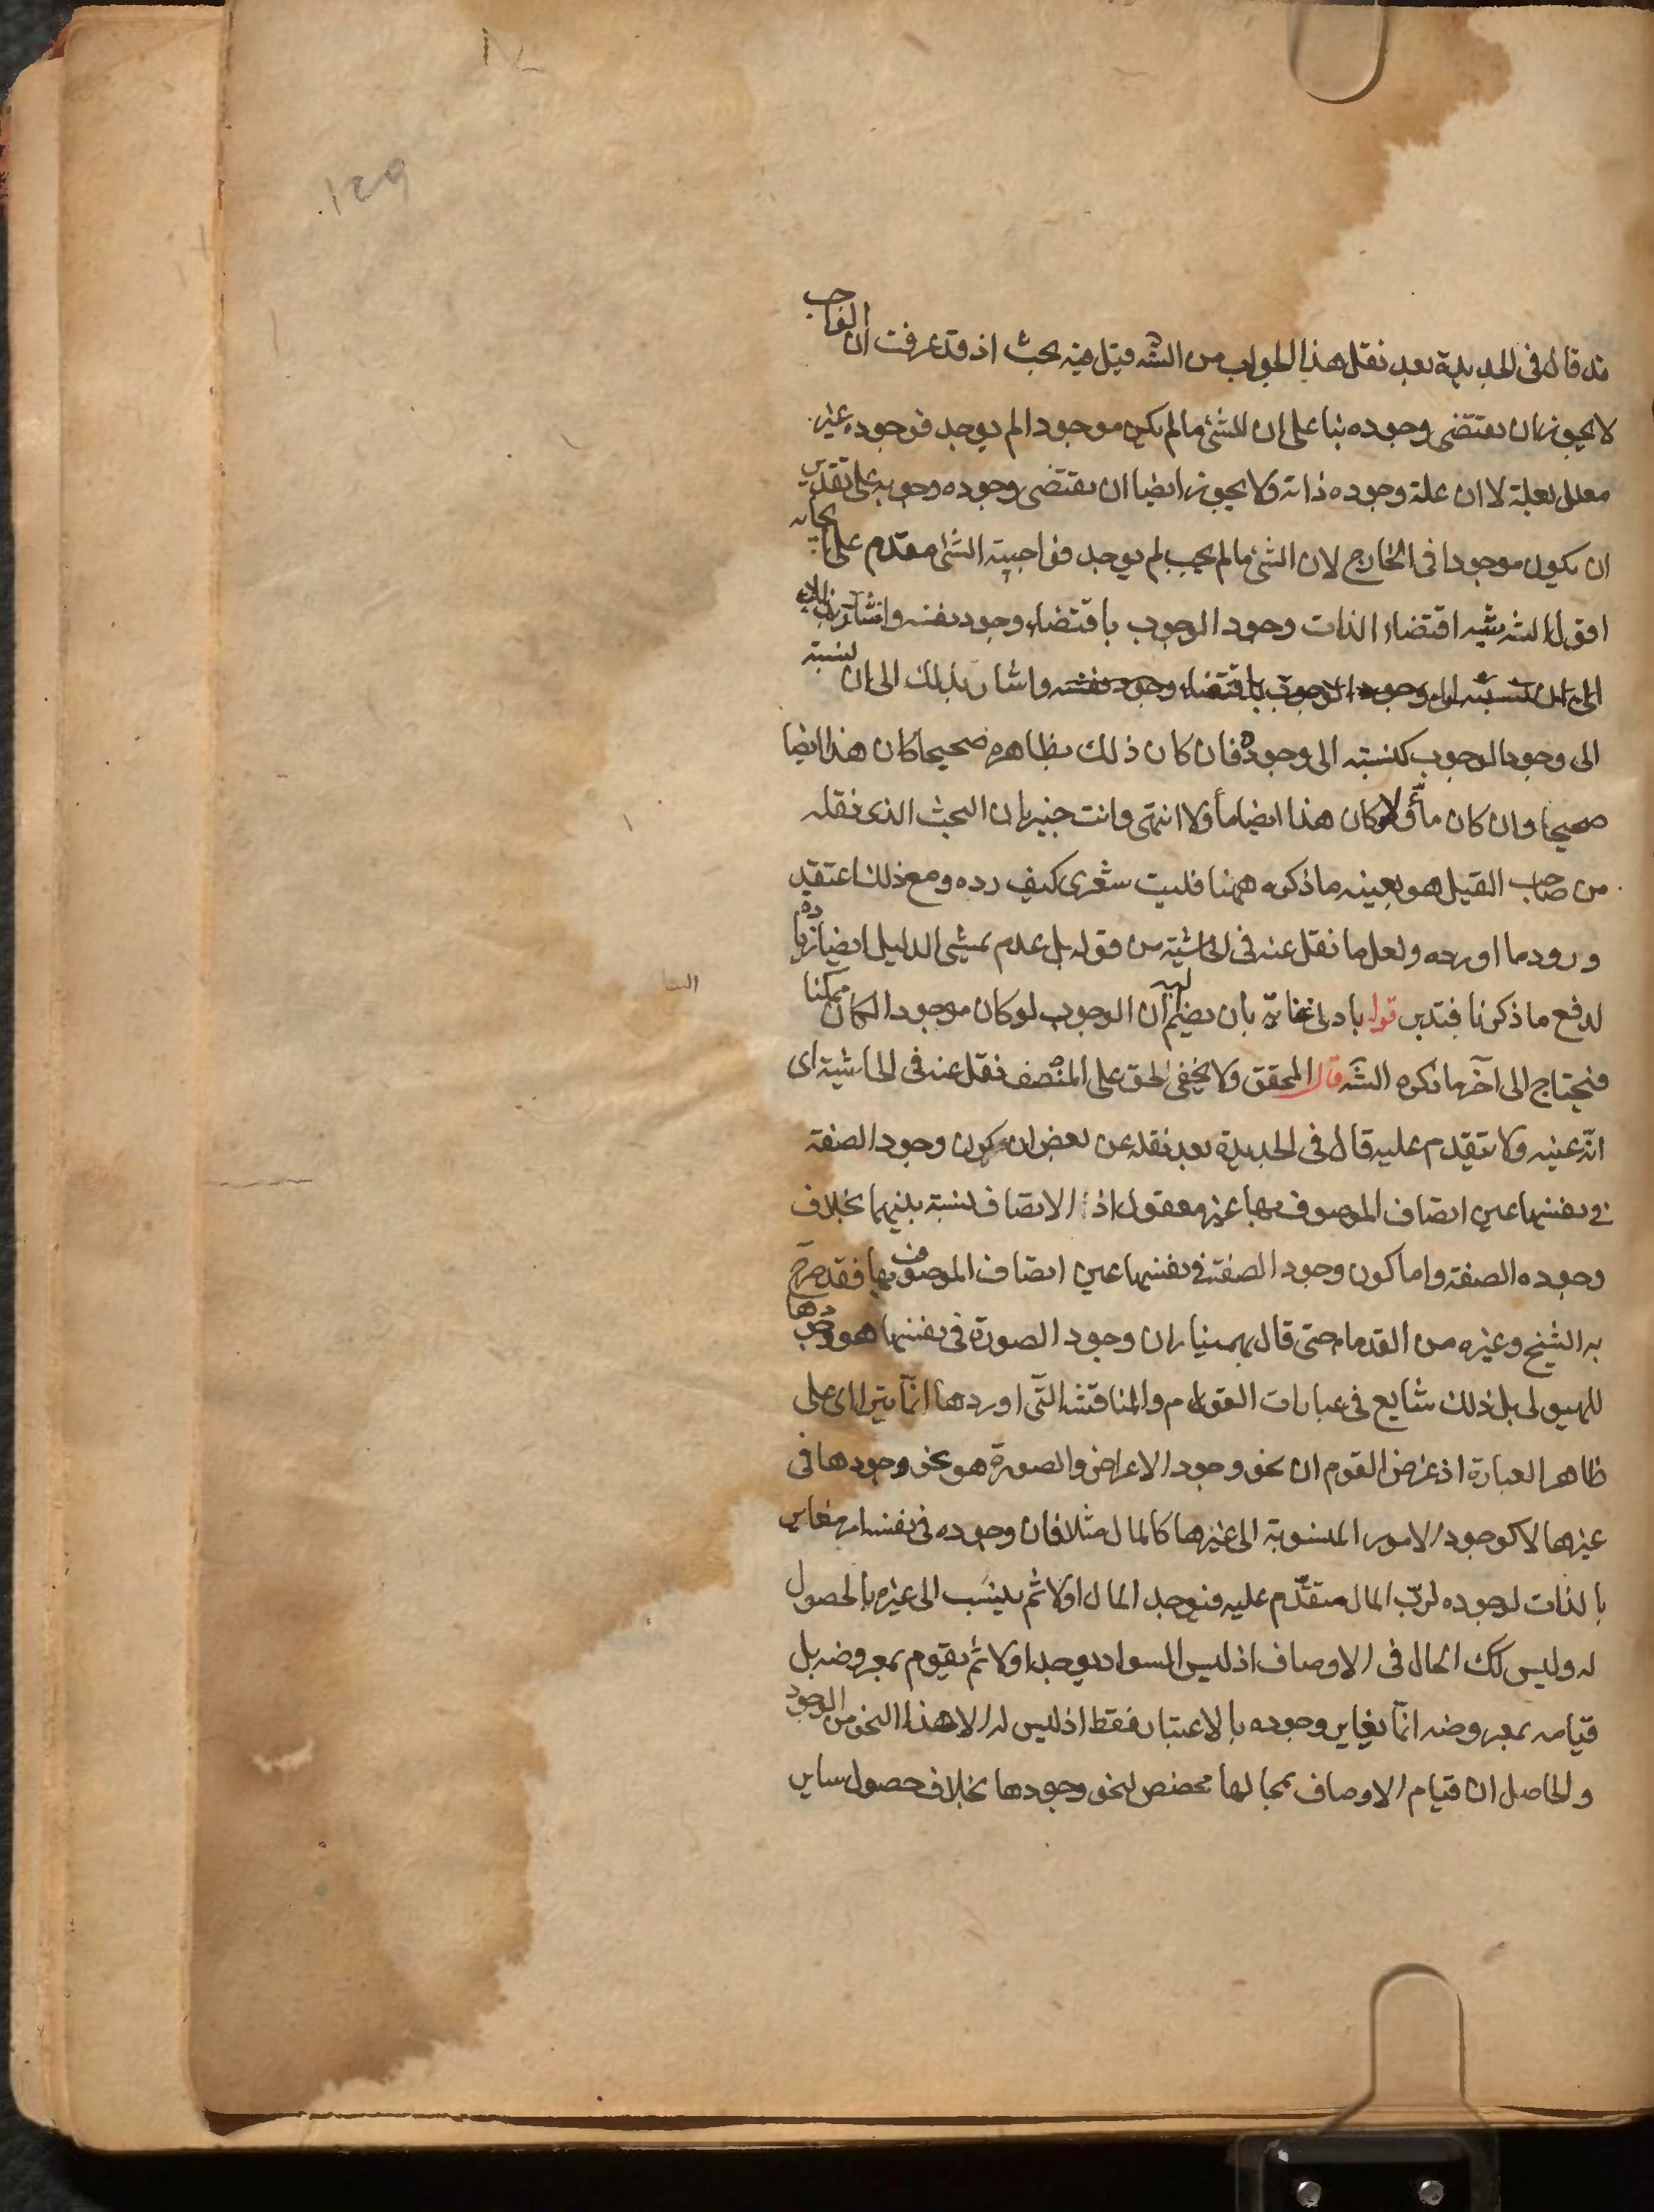 129
قد قال فى الجديدة بعد نقل هذا الجواب من الشه قيل فيه بحث اذ قد عرفت ان الواجب
لا يجوز ان يقتضى وجوده بناء على ان الشئ ما لم يكن موجودا لم يوجد فوجوده غير
معلل بعلة لا ان علة وجوده ذاته ولا يجوز ايضا ان يقتضى وجوده وجوبه على تقدير
ان يكون موجودا فى الخارج لان الشئ ما لم يجب لم يوجد فواجبية الشئ مقدم على
اقول الشه شبه اقتضاء الذات وجود الوجوب باقتضاء وجود نفسه واشار بذلك
الى ان نسبته الى وجود الوجوب باقتضاء وجود نفسه واشار بذلك الى ان نسبته
الى وجود الوجوب كنسبته الى وجوده فان كان ذلك بظاهره صحيحا كان هذا ايضا
صحيحا وان كان مأولا كان هذا ايضا مأولا انتهى وانت خبير بان البحث الذى نقله
من صاحب القيل هو بعينه ما ذكره ههنا فليت شعرى كيف رده ومع ذلك اعتقد
ورود ما اورده ولعل ما نقل عنه فى الحاشية من قوله بل عدم تمشى الدليل ايضا
لدفع ما ذكرنا فتدبر قوله بادنى عناية بان يضم اليه ان الوجوب لو كان موجودا لكان ممكنا
فيحتاج الى آخر ما ذكره الشه قال المحقق ولا يخفى الحق على المنصف نقل عنه فى الحاشية اى
انه عينه ولا يتقدم عليه قال فى الجديدة بعد نقله عن بعض ان كون وجود الصفة
فى نفسها عين اتصاف الموصوف بها غير معقول اذ الاتصاف نسبة بينهما بخلاف
وجوده الصفة واما كون وجود الصفة فى نفسها عين اتصاف الموصوف بها فقد صرح
به الشيخ وغيره من القدماء حتى قال بهمنيار ان وجود الصورة فى نفسها هو وجودها
للهيولى بل ذلك شايع فى عبارات القوم والمناقشة التى اوردها انما يتراآى على
ظاهر العبارة اذ غرض القوم ان نحو وجود الاعراض والصورة هو نحو وجودها فى
غيرها لا كوجود الامور المنسوبة الى غيرها كالمال مثلا فان وجوده فى نفسه امر مغاير
بالذات لوجوده لرب المال متقدم عليه فيوجد المال اولا ثم ينسب الى غيره بالحصول
له وليس كك الحال فى الاوصاف اذ ليس السواد يوجد اولا ثم يقوم بمعروضه بل
قيامه بمعروضه انما يغاير وجوده بالاعتبار فقط اذ ليس له الا هذا النحو من الوجود
والحاصل ان قيام الاوصاف بمحالها مخصص لنحو وجودها بخلاف حصول ساير